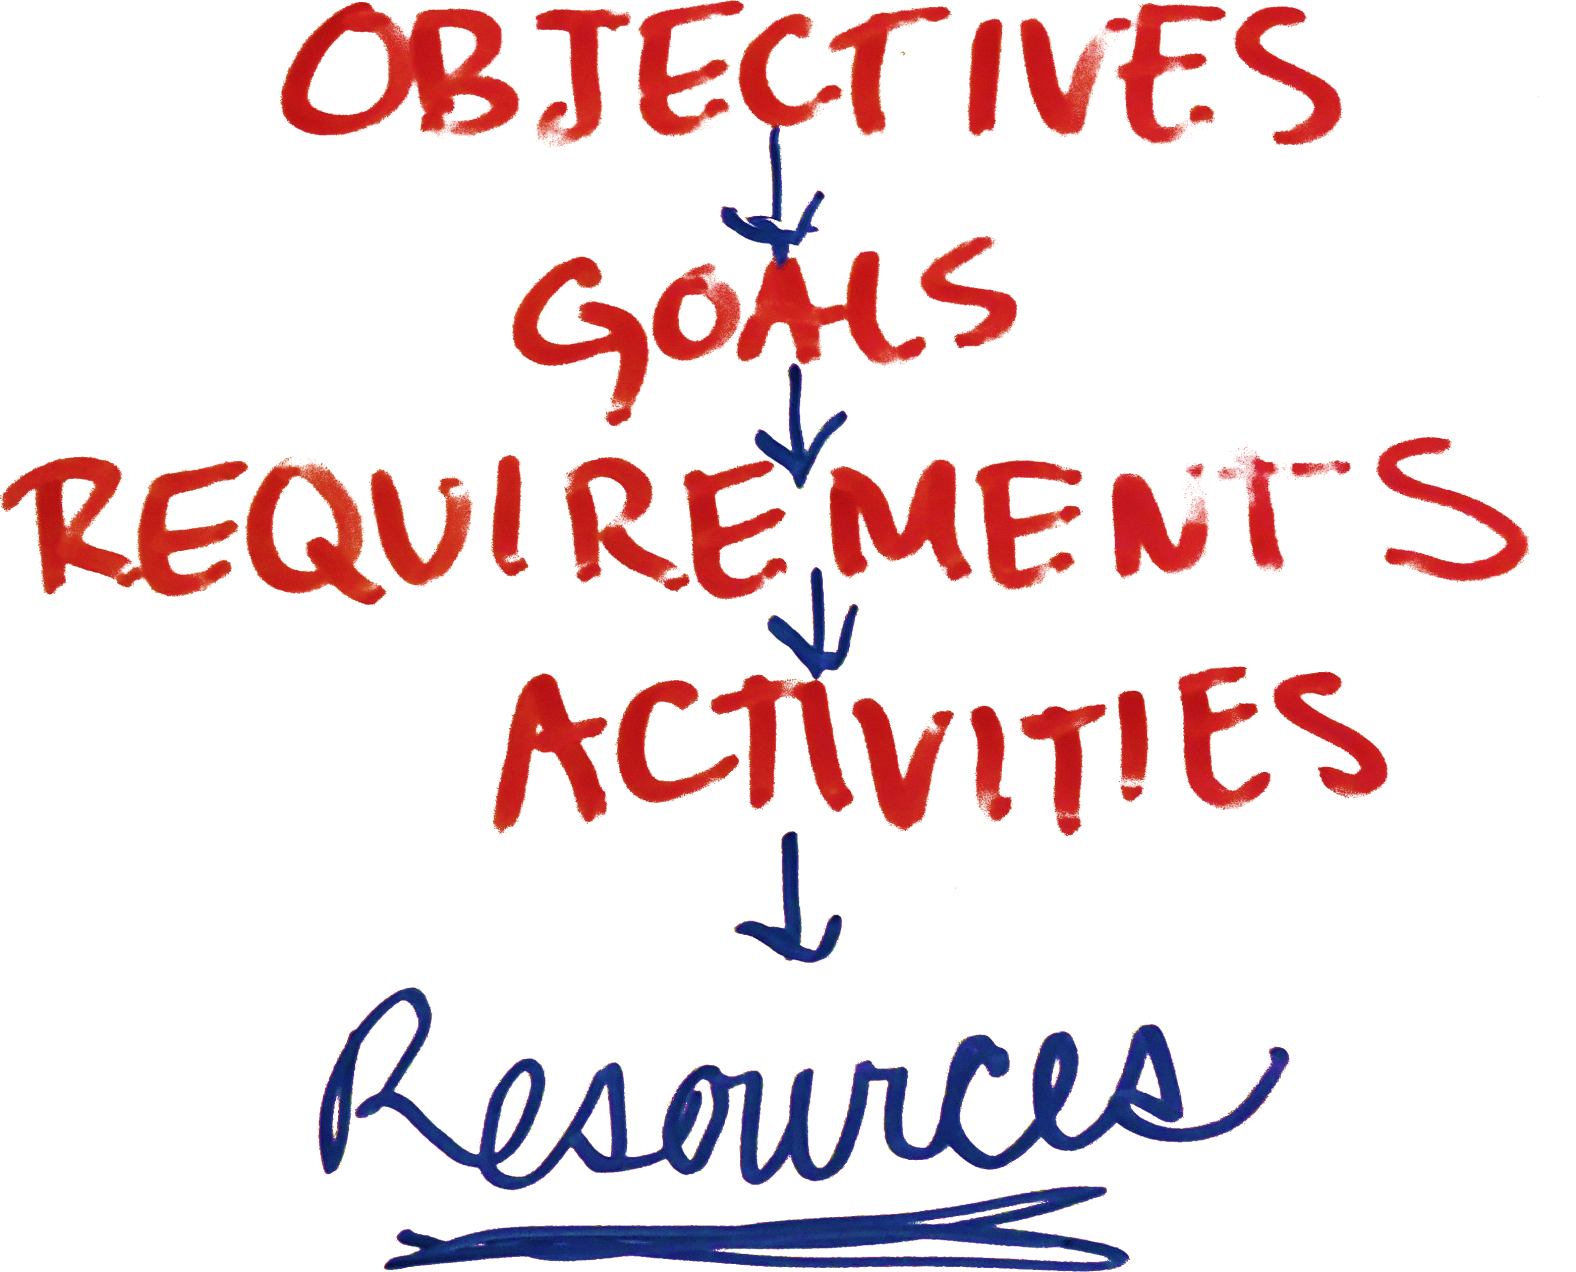 OBJECTIVES
GOALS
REQUIREMENTS
ACTIVITIES
Resources